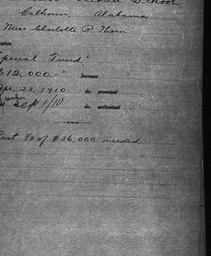 School
Calhoun Alabama
Miss Charlotte R Thorn
Special Fund"
$12,000.-" Increase
Apr 22, 1910 do. promised
Sept 1/10 do. authorized
Last 1/3 of $36,000 needed